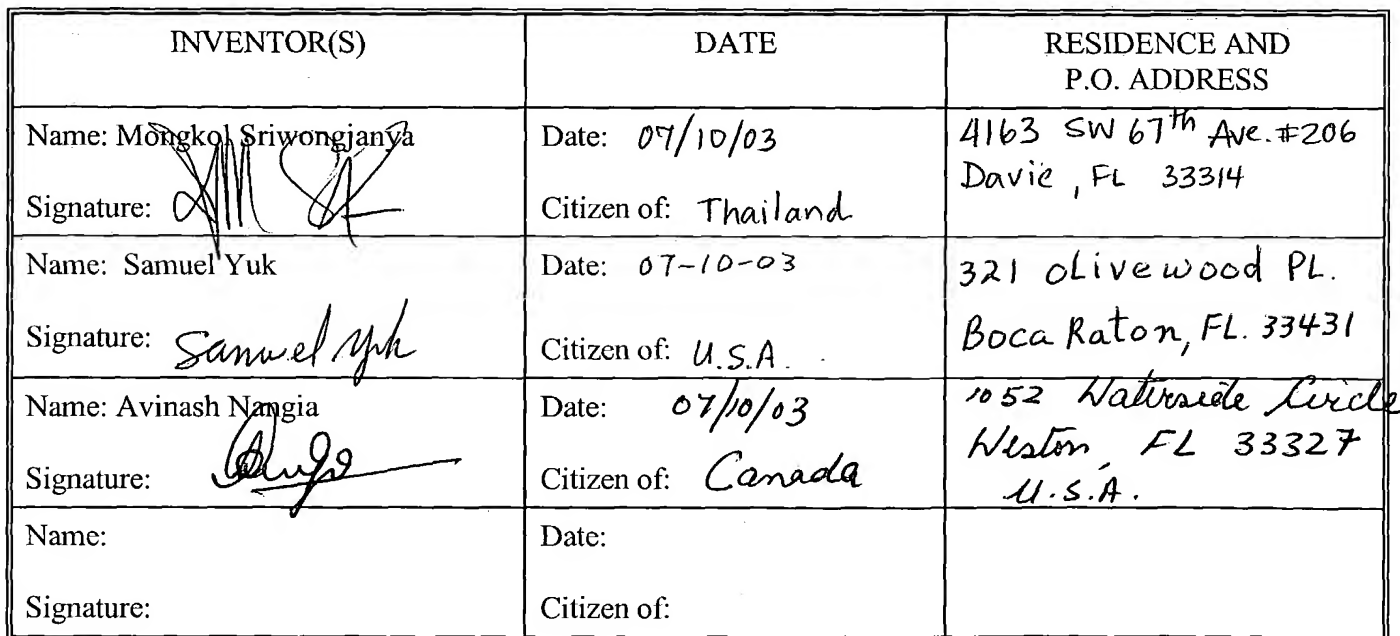 INVENTOR(S)
DATE
RESIDENCE AND
P.O. ADDRESS
Name: Mongkol Sriwongjanya
Signature:
Date: 07/10/03
Citizen of: Thailand
4163 SW 67th Ave. #206
Davie, FL 33314
Name: Samuel Yuk
Signature: Samuel Yuk
Date: 07-10-03
Citizen of: U.S.A.
321 oLivewood PL.
Boca Raton, FL. 33431
Name: Avinash Nangia
Signature:
Date: 07/10/03
Citizen of: Canada
1052 Waterside Circle
Weston, FL 33327
U.S.A.
Name:
Signature:
Date:
Citizen of: